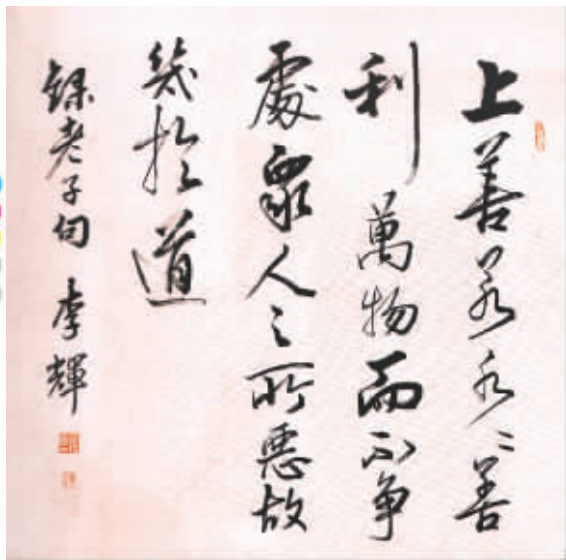 上善若水〻善
利萬物而不争
處衆人之所惡故
幾於道
録老子句 李輝